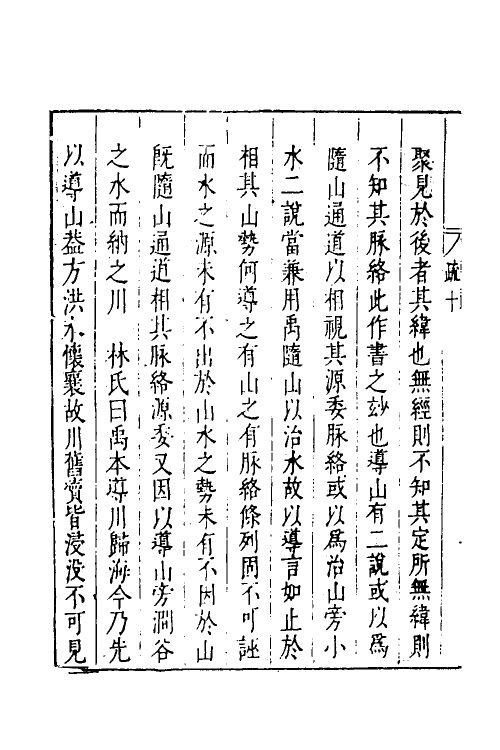 疏十
聚見於後者其緯也無經則不知其定所無緯則
不知其脉絡此作書之妙也導山有二說或以爲
隨山通道以相視其源委脉絡或以爲治山旁小
水二說當兼用禹隨山以治水故以導言如止於
相其山勢何導之有山之有脉絡條列固不可誣
而水之源未有不出於山水之勢未有不因於山
旣隨山通道相其脉絡源委又因以導山旁澗谷
之水而納之川　林氏曰禹本導川歸海今乃先
以導山葢方洪水懷襄故川舊瀆皆浸没不可見